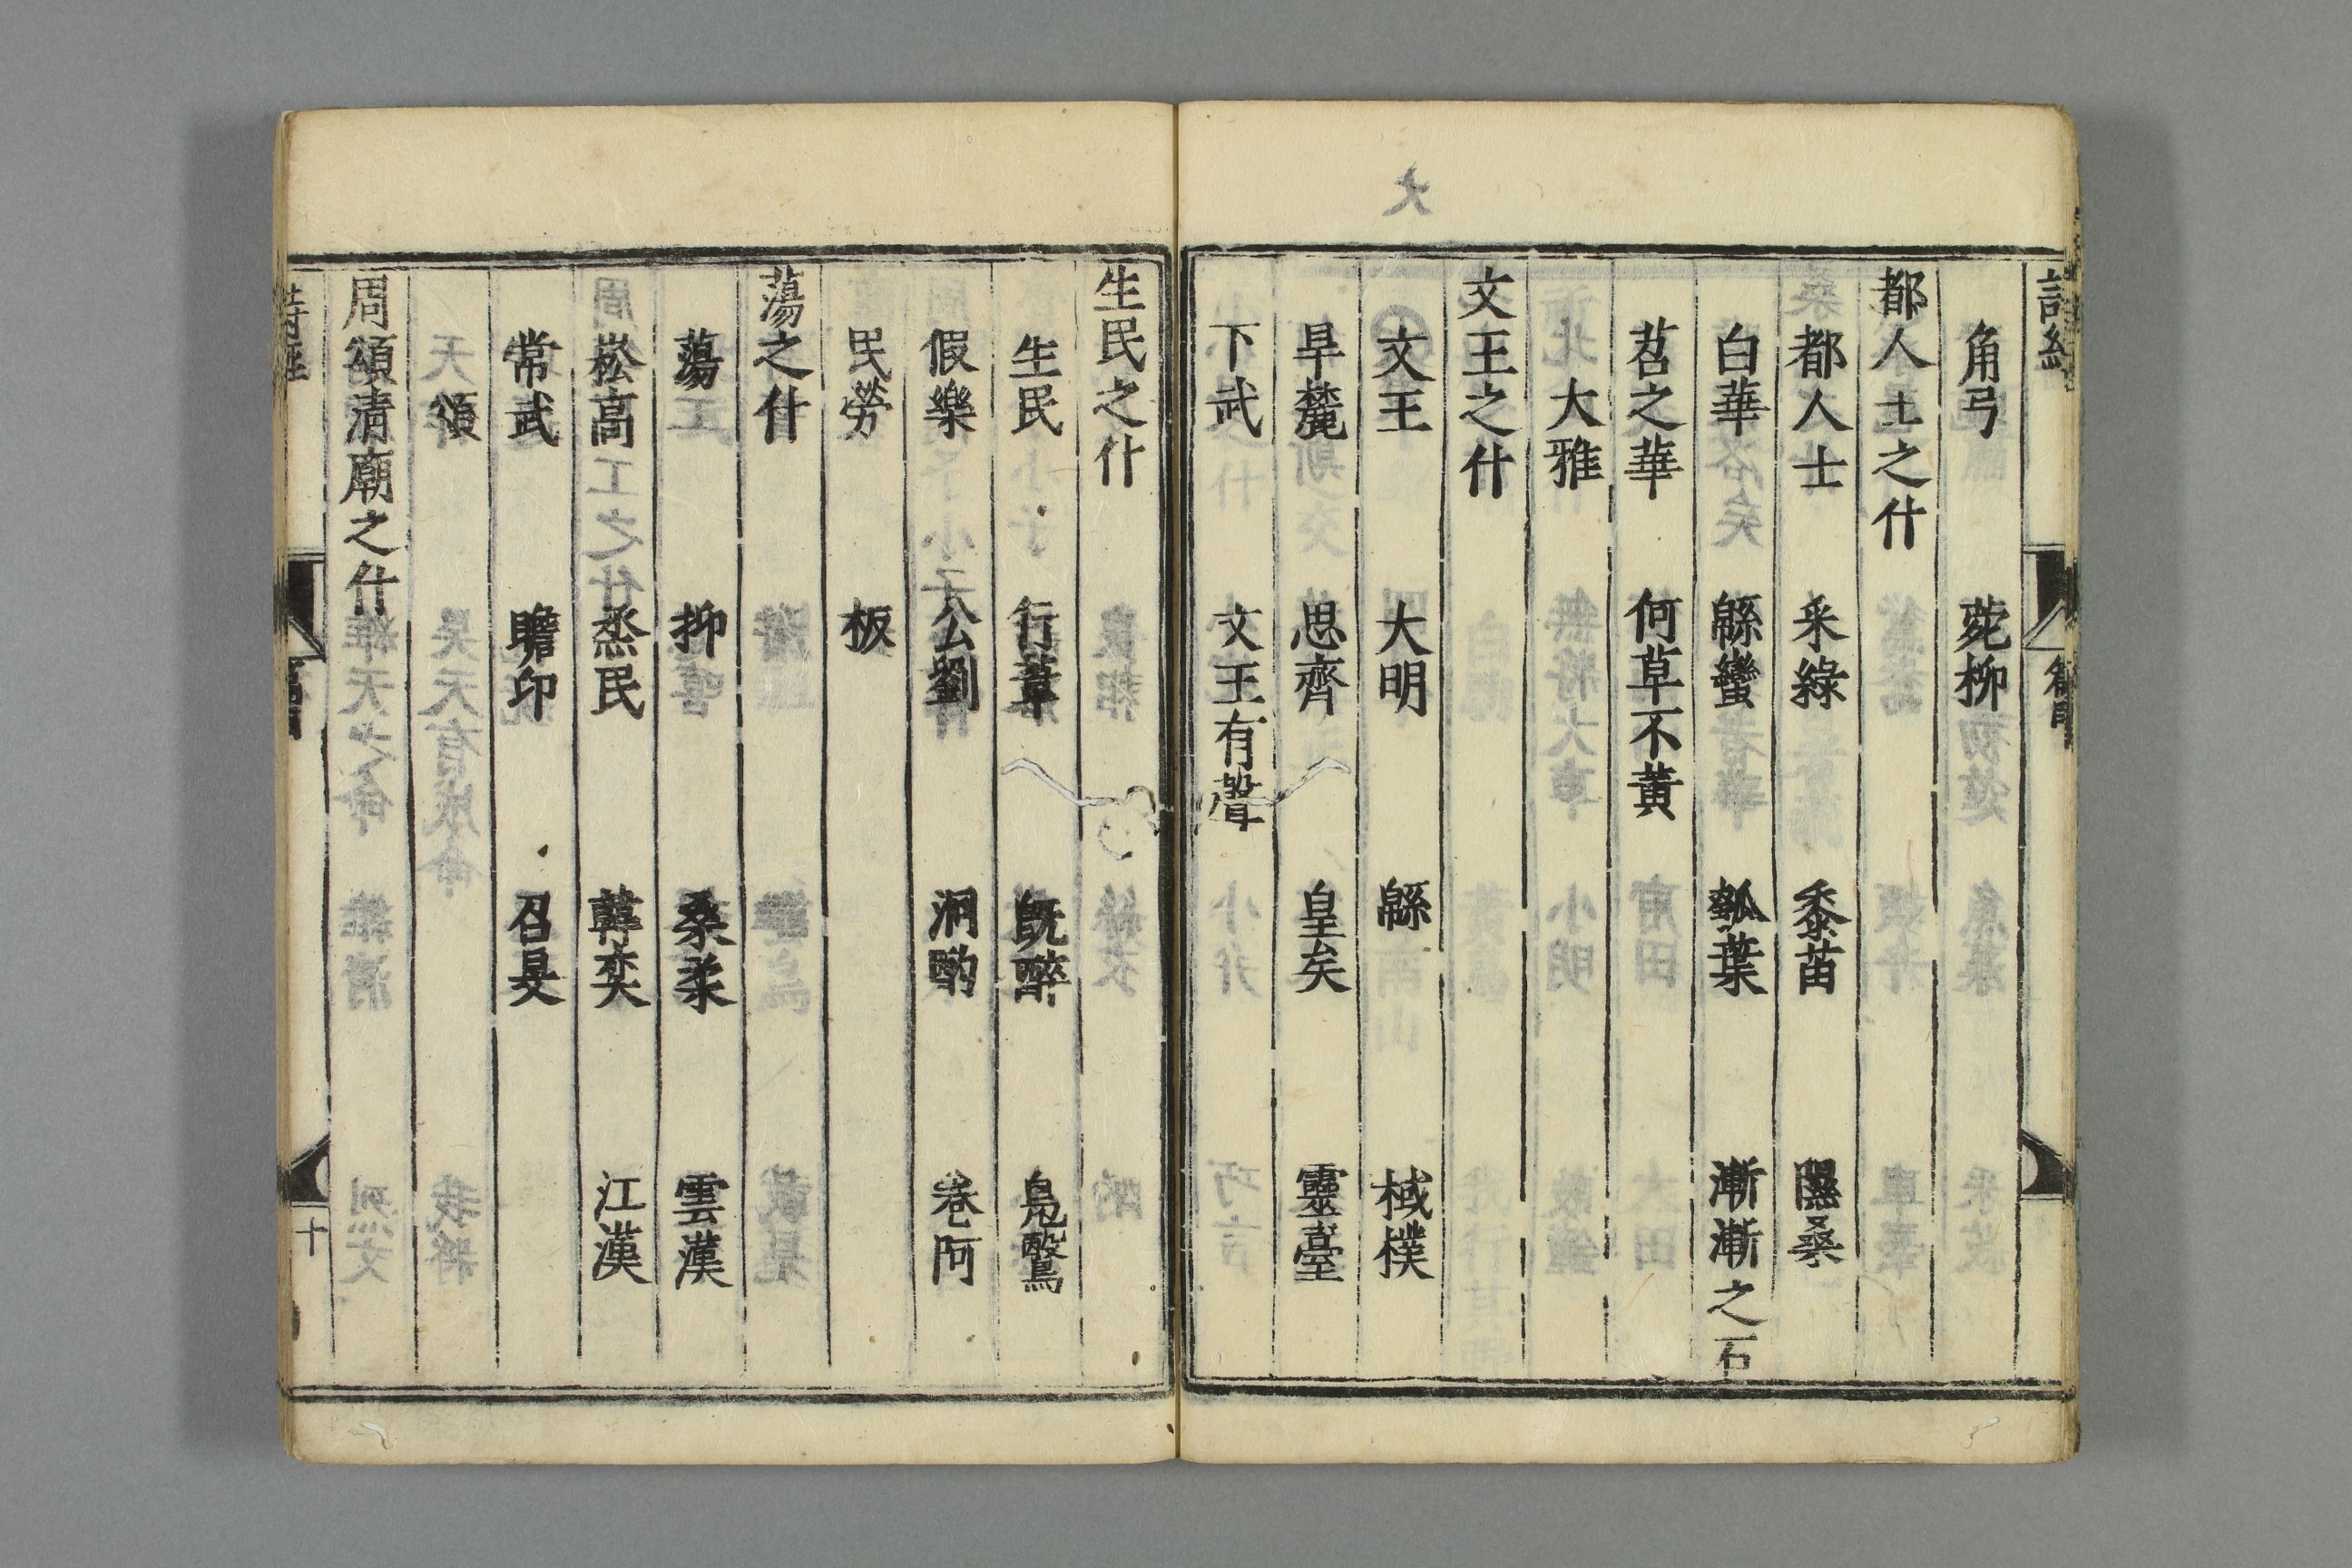 角弓 菀柳
都人士之什
都人士 采綠 黍苗 隰桑
白華 緜蠻 瓠葉 漸漸之石
苕之華 何草不黃
大雅
文王之什
文王 大明 緜 棫樸
旱麓 思齊 皇矣 靈臺
下武 文王有聲
生民之什
生民 行葦 旣醉 鳧鷖
假樂 公劉 泂酌 卷阿
民勞 板
蕩之什
蕩 抑 桑柔 雲漢
崧高 烝民 韓奕 江漢
常武 瞻卬 召旻
頌
周頌清廟之什
詩經
十